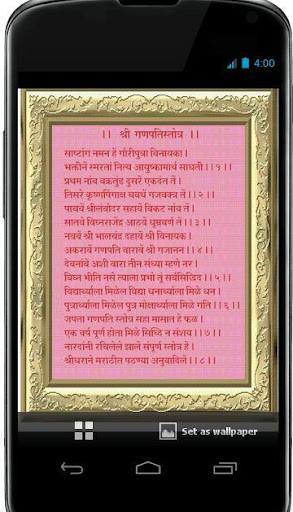 4:00
।। श्री गणपतिस्तोत्र ।।
साष्टांग नमन हे गौरीपुत्रा विनायका।
भक्तीनें स्मरतां नित्य आयुष्कामार्थ साधती।।१।।
प्रथम नांव वक्रतुंड दुसरें एकदंत तें।
तिसरे कृष्णपिंगाक्ष चवथें गजवक्त्र तें।।२।।
पाचवें श्रीलंबोदर सहावें विकट नांव तें।
सातवें विघ्नराजेंद्र आठवें धूम्रवर्ण तें।।३।।
नववें श्री भालचंद्र दहावें श्री विनायक।
अकरावें गणपति बारावें श्री गजानन।।४।।
देवनावें अशी बारा तीन संध्या म्हणे नर।
विघ्न भीति नसे त्याला प्रभो तू सर्वसिद्धिद।।५।।
विद्यार्थ्याला मिळेल विद्या धनार्थ्याला मिळे धन।
पुत्रार्थ्याला मिळेल पुत्र मोक्षार्थ्याला मिळे गति।।६।।
जपता गणपति स्तोत्र सहा मासात हे फळ।
एक वर्ष पूर्ण होता मिळे सिध्दि न संशय।।७।।
नारदांनी रचिलेले झाले संपूर्ण स्तोत्र हे।
श्रीधरानं मराठीत पठण्या अनुवादिले।।८।।
Set as wallpaper